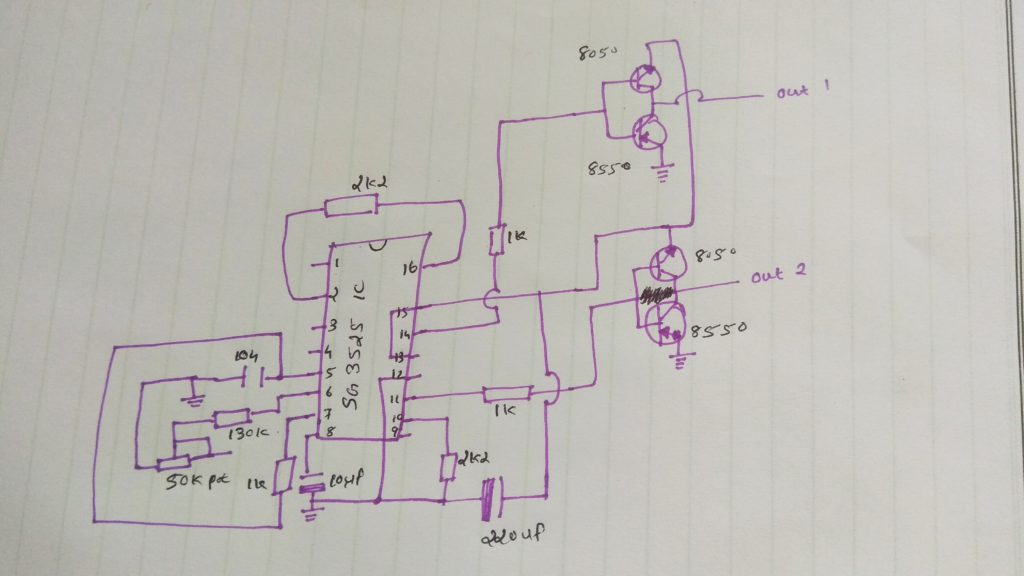 8050
out 1
8550
2K2
1K
1
16
8050
2
IC
out 2
15
3
14
8550
SG3525
4
13
104
5
12
6
11
1K
7
10
130K
8
9
2K2
50K pot
1K
10μf
220μf